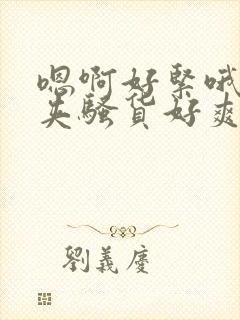 嗯啊好紧哦
英骚货好爽
劉義慶